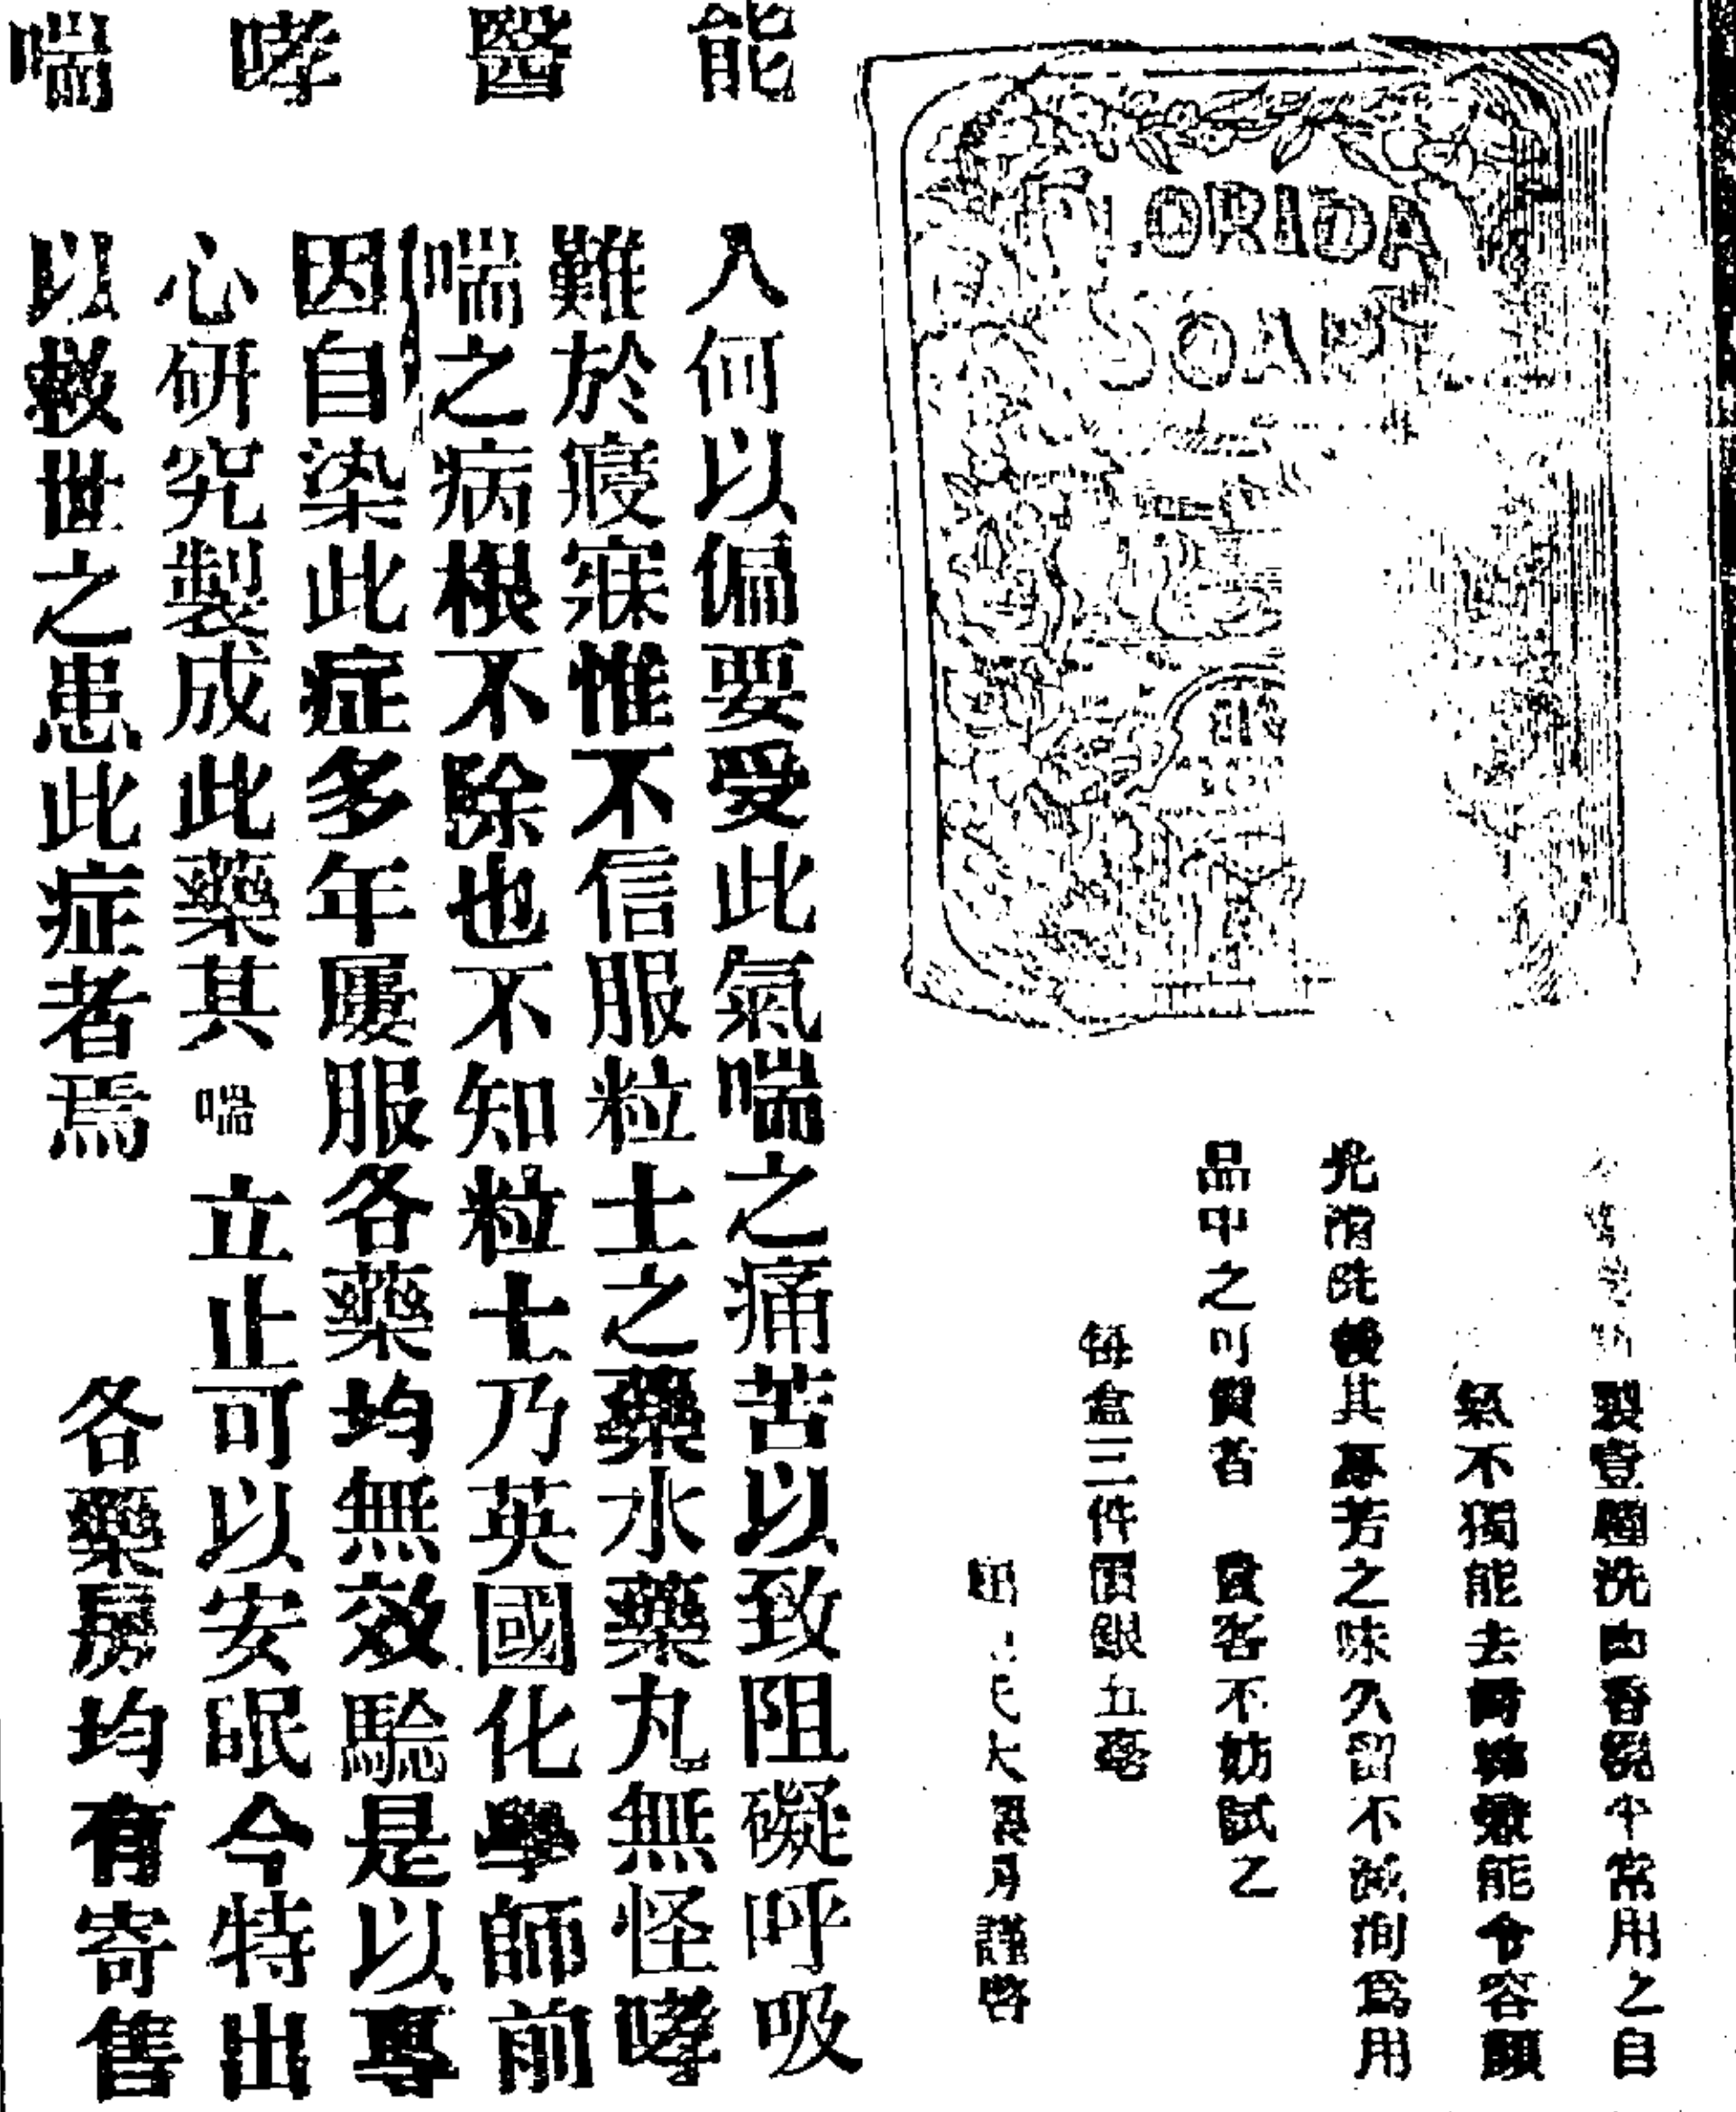 FLORIDA
SOAP
製壹種洗面香梘平常用之自
氣不獨能去 能令容顏
光滑洗後其馨芳之味久留不滅洵爲用
品中之可貴者 貴客不妨試之
每盒三件價銀五毫
大藥房謹啓
能醫哮喘
人何以偏要受此氣喘之痛苦以致阻礙呼吸
難於寢寐惟不信服粒士之藥水藥丸無怪哮
喘之病根不除也不知粒士乃英國化學師前
因自染此症多年屢服各藥均無效驗是以專
心研究製成此藥其喘立止可以安眠今特出
以救世之患此症者焉
各藥房均有寄售